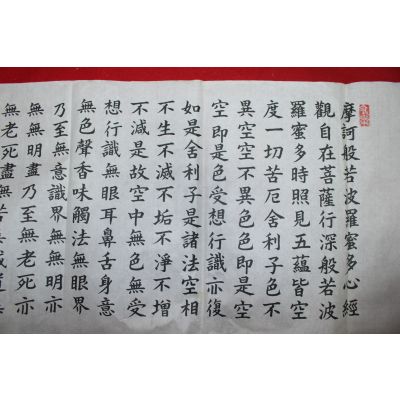 摩訶般若波羅蜜多心經
觀自在菩薩行深般若波
羅蜜多時照見五蘊皆空
度一切苦厄舍利子色不
異空空不異色色即是空
空即是色受想行識亦復
如是舍利子是諸法空相
不生不滅不垢不淨不增
不減是故空中無色無受
想行識無眼耳鼻舌身意
無色聲香味觸法無眼界
乃至無意識界無無明亦
無無明盡乃至無老死亦
無老死盡無